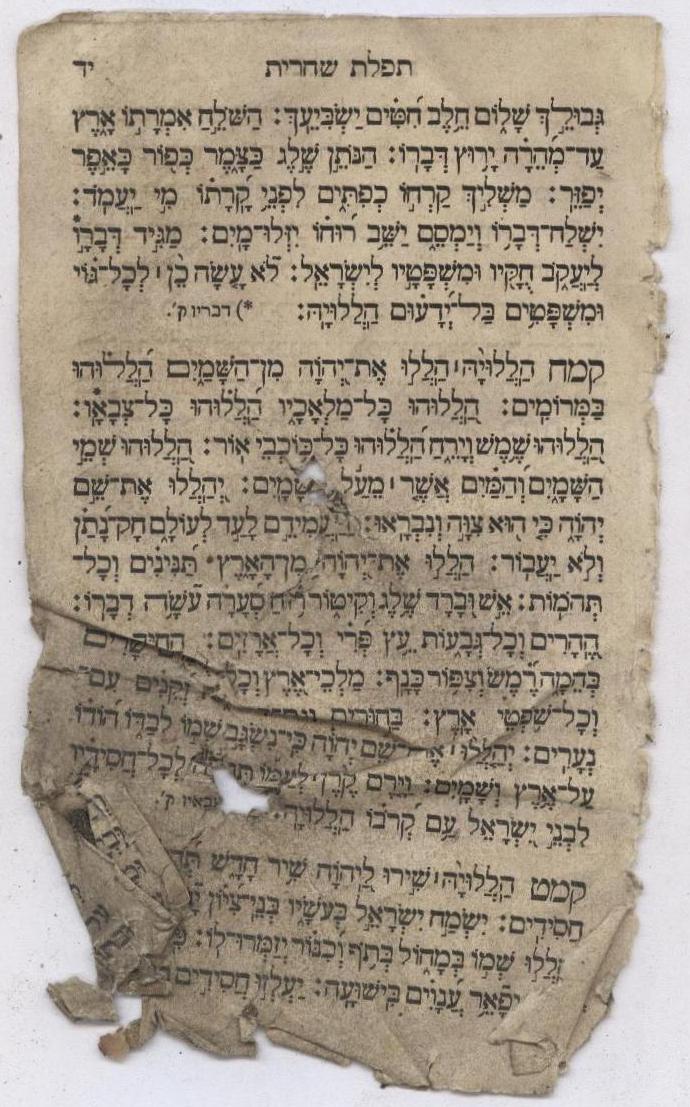 תפלת שחרית יד
גְּבוּלֵ֣ךְ שָׁל֑וֹם חֵ֥לֶב חִ֝טִּ֗ים יַשְׂבִּיעֵֽךְ׃ הַשֹּׁלֵ֣חַ אִמְרָת֣וֹ אָ֑רֶץ
עַד־מְ֝הֵרָ֗ה יָר֥וּץ דְּבָרֽוֹ׃ הַנֹּתֵ֣ן שֶׁ֣לֶג כַּצָּ֑מֶר כְּ֝פ֗וֹר כָּאֵ֥פֶר
יְפַזֵּֽר׃ מַשְׁלִ֣יךְ קַֽרְח֣וֹ כְפִתִּ֑ים לִפְנֵ֥י קָ֝רָת֗וֹ מִ֣י יַעֲמֹֽד׃
יִשְׁלַח־דְּבָר֥וֹ וְיַמְסֵ֑ם יַשֵּׁ֥ב ר֝וּח֗וֹ יִזְּלוּ־מָֽיִם׃ מַגִּ֣יד דְּבָרָ֣ו
לְיַֽעֲקֹ֑ב חֻקָּ֥יו וּ֝מִשְׁפָּטָ֗יו לְיִשְׂרָאֵֽל׃ לֹ֘א עָ֤שָׂה כֵ֨ן ׀ לְכָל־גּ֗וֹי
וּמִשְׁפָּטִ֥ים בַּל־יְ֝דָע֗וּם הַֽלְלוּיָֽהּ׃ *) דבריו ק׳.
קמח הַ֥לְלוּיָ֨הּ ׀ הַֽלְל֣וּ אֶת־יְ֭הוָֹה מִן־הַשָּׁמַ֑יִם הַֽ֝לְל֗וּהוּ
בַּמְּרוֹמִֽים׃ הַֽלְל֥וּהוּ כָּל־מַלְאָכָ֑יו הַֽ֝לְל֗וּהוּ כָּל־צְבָאָֽו׃
הַֽ֭לְלוּהוּ שֶׁ֣מֶשׁ וְיָרֵ֑חַ הַֽ֝לְל֗וּהוּ כָּל־כּ֥וֹכְבֵי אֽוֹר׃ הַֽ֭לְלוּהוּ שְׁמֵ֣י
הַשָּׁמָ֑יִם וְ֝הַמַּ֗יִם אֲשֶׁ֤ר ׀ מֵעַ֬ל שָׁמָֽיִם׃ יְ֭הַֽלְלוּ אֶת־שֵׁ֣ם
יְהוָֹ֑ה כִּ֤י ה֭וּא צִוָּ֣ה וְנִבְרָֽאוּ׃ וַיַּעֲמִידֵ֣ם לָעַ֣ד לְעוֹלָ֑ם חָק־נָ֝תַ֗ן
וְלֹ֣א יַעֲבֽוֹר׃ הַֽלְל֣וּ אֶת־יְ֭הוָֹה מִן־הָאָ֑רֶץ תַּ֝נִּינִ֗ים וְכָל־
תְּהֹמֽוֹת׃ אֵ֣שׁ וּ֭בָרָד שֶׁ֣לֶג וְקִיט֑וֹר ר֥וּחַ סְ֝עָרָ֗ה עֹשָׂ֥ה דְבָרֽוֹ׃
הֶהָרִ֥ים וְכָל־גְּבָע֑וֹת עֵ֥ץ פְּ֝רִ֗י וְכָל־אֲרָזִֽים׃ הַֽחַיָּ֥ה
בְּהֵמָ֑ה רֶ֝֗מֶשׂ וְצִפּ֥וֹר כָּנָֽף׃ מַלְכֵי־אֶ֭רֶץ וְכָל־ זְקֵנִים עִם־
וְכָל־שֹׁ֥פְטֵי אָֽרֶץ׃ בַּחוּרִ֥ים
נְעָרִֽים׃ יְהַלְל֤וּ ׀ אֶת־שֵׁ֬ם יְהוָֹ֗ה כִּֽי־נִשְׂגָּ֣ב שְׁמ֣וֹ לְבַדּ֑וֹ ה֝וֹד֗וֹ
עַל־אֶ֥רֶץ וְשָׁמָֽיִם׃ וַיָּ֤רֶם קֶ֨רֶן ׀ לְעַמּ֡וֹ לְֽכָל־חֲסִידָ֗יו
לִבְנֵ֣י יִ֭שְׂרָאֵל עַ֥ם קְרֹב֗וֹ הַֽלְלוּיָֽהּ׃ צבאיו ק׳.
קמט הַ֥לְלוּיָ֨הּ ׀ שִׁ֣ירוּ לַ֭יהוָֹה שִׁ֣יר חָדָ֑שׁ
חֲסִידִֽים׃ יִשְׂמַ֣ח יִשְׂרָאֵ֣ל בְּעֹשָׂ֑יו בְּנֵֽי־צִ֝יּ֗וֹן
שְׁמ֣וֹ בְמָח֑וֹל בְּתֹ֥ף וְ֝כִנּ֗וֹר יְזַמְּרוּ־לֽוֹ׃
יְפָאֵ֥ר עֲ֝נָוִ֗ים בִּישׁוּעָֽה׃ יַעְלְז֣וּ חֲסִידִ֣ים